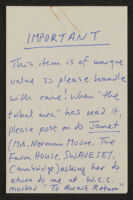 IMPORTANT
This item is of unique
value so please handle
with care! When "the
tribal area" has read it,
please post on to Janet
(Mrs. Norman Moore, The
Farm House, SWAVESEY,
Cambridge) asking her to
return to me at W.C.C.
marked "To Await Return"